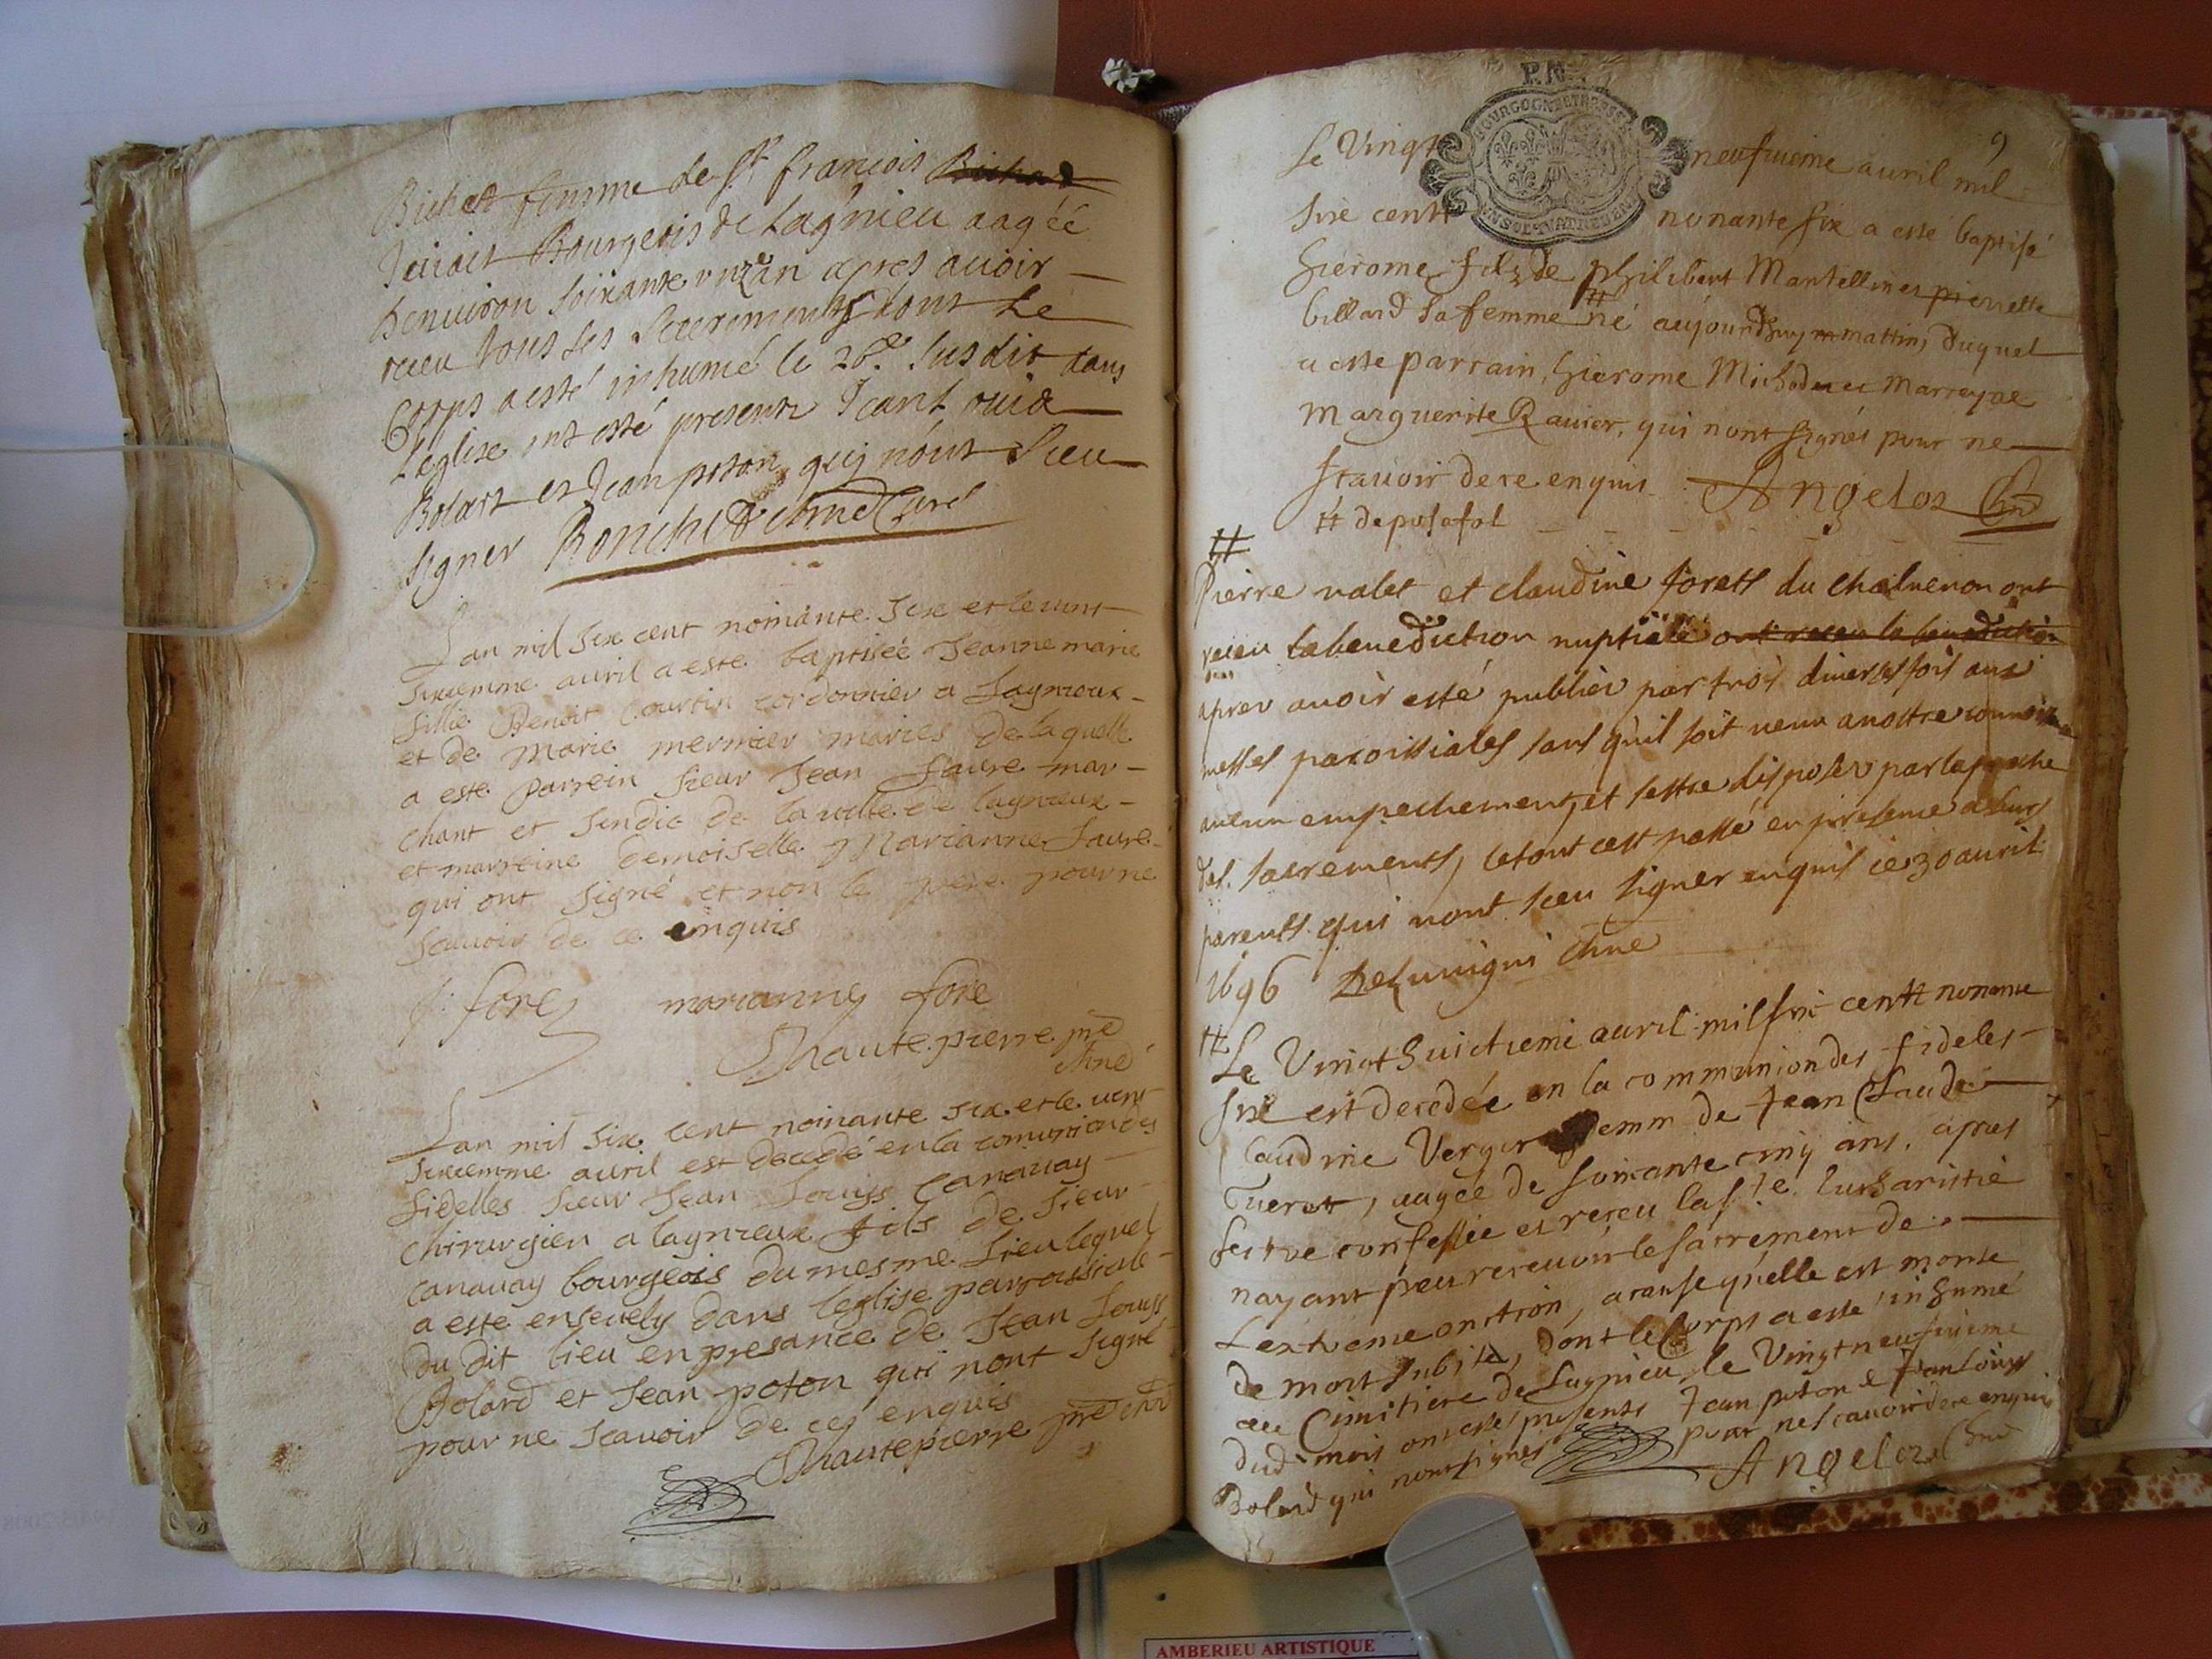 femme de Sr francois
Bourgeois de Lagnieu aagéé
Denuiron soixante vn an apres auoir
receu tous ses Sacrements dont Le
Corps a esté inhumé le 26e. susdit dans
Léglise ont esté presents Jean Louis
Bolart et Jean poton quj nont Sceu
signer Ronchet Curé
Lan mil six cent nonante six et le vint
sixiemme auril a este baptisée Jeanne marie
fillie Benoit Courtin cordonnier a Lagnieux
et de Marie mermier mariés de laquelle
a este parrein sieur Jean faure mar-
chant et sindic de la ville de lagnieux
et marreine demoiselle Marianne faure
qui ont signé et non le pere pour ne
scauoir de ce enquis
J. fore marianny fore
Chautepierre pre
Lan mil six cent nonante six et le vint
sixiemme auril est decedé en la comunion des
fidelles sieur Jean Louys Canauay
chirurgien a lagnieux fils de sieur
canauay bourgeois du mesme lieu lequel
a esté enseuely dans leglise parroissialle
du dit lieu en presance de Jean Louys
Bolard et Jean poton qui nont signé
pour ne scauoir de ce enquis
Chautepierre pre
P.N.
9
BOURGOGNE ET BRESSE
Le Vingt neufuieme auril mil
sixe centt nonante six a esté baptisé
hierome fils de philibert Mantellin et pierrette
billard sa femme # né aujourdhuy mattin, duquel
a este parrain, hierome Michod et Marrayne
Marguerite Rauier, qui nont signés pour ne
scauoir de ce enquis Angelos
# depusafol
#
Pierre valet et claudine forest du ont
receu la benediction nuptiale ont receu la benediction
apres auoir esté publiés par trois diuerses fois aux
messes paroissiales sans quil soit venu a nostre connoissance
aucun empechement, et sestre disposés par laproche
des sacrements, le tout cest passé en presence de leurs
parents qui nont sceu signer enquis ce 30 auril
1696
#
Le Vingt huictieme auril mil six centt nonante
Sixe est decedée en la communion des fideles
Claudine Verger femm de Jean Claude
, aagée de soixante cinq ans, apres
sestre confessée et receu la Ste. Eucharistie
nayant peu receuoir le sacrement de
Lextreme onction, a cause quelle est morte
de mort subite, dont le Corps a esté inhumé
au Cimitiere de Lagnieu, le Vingt neufuieme
dud. mois ont esté presents Jean poton et Jean Louys
Bolard qui nont signés pour ne scauoir de ce enquis
Angelos
AMBERIEU ARTISTIQUE